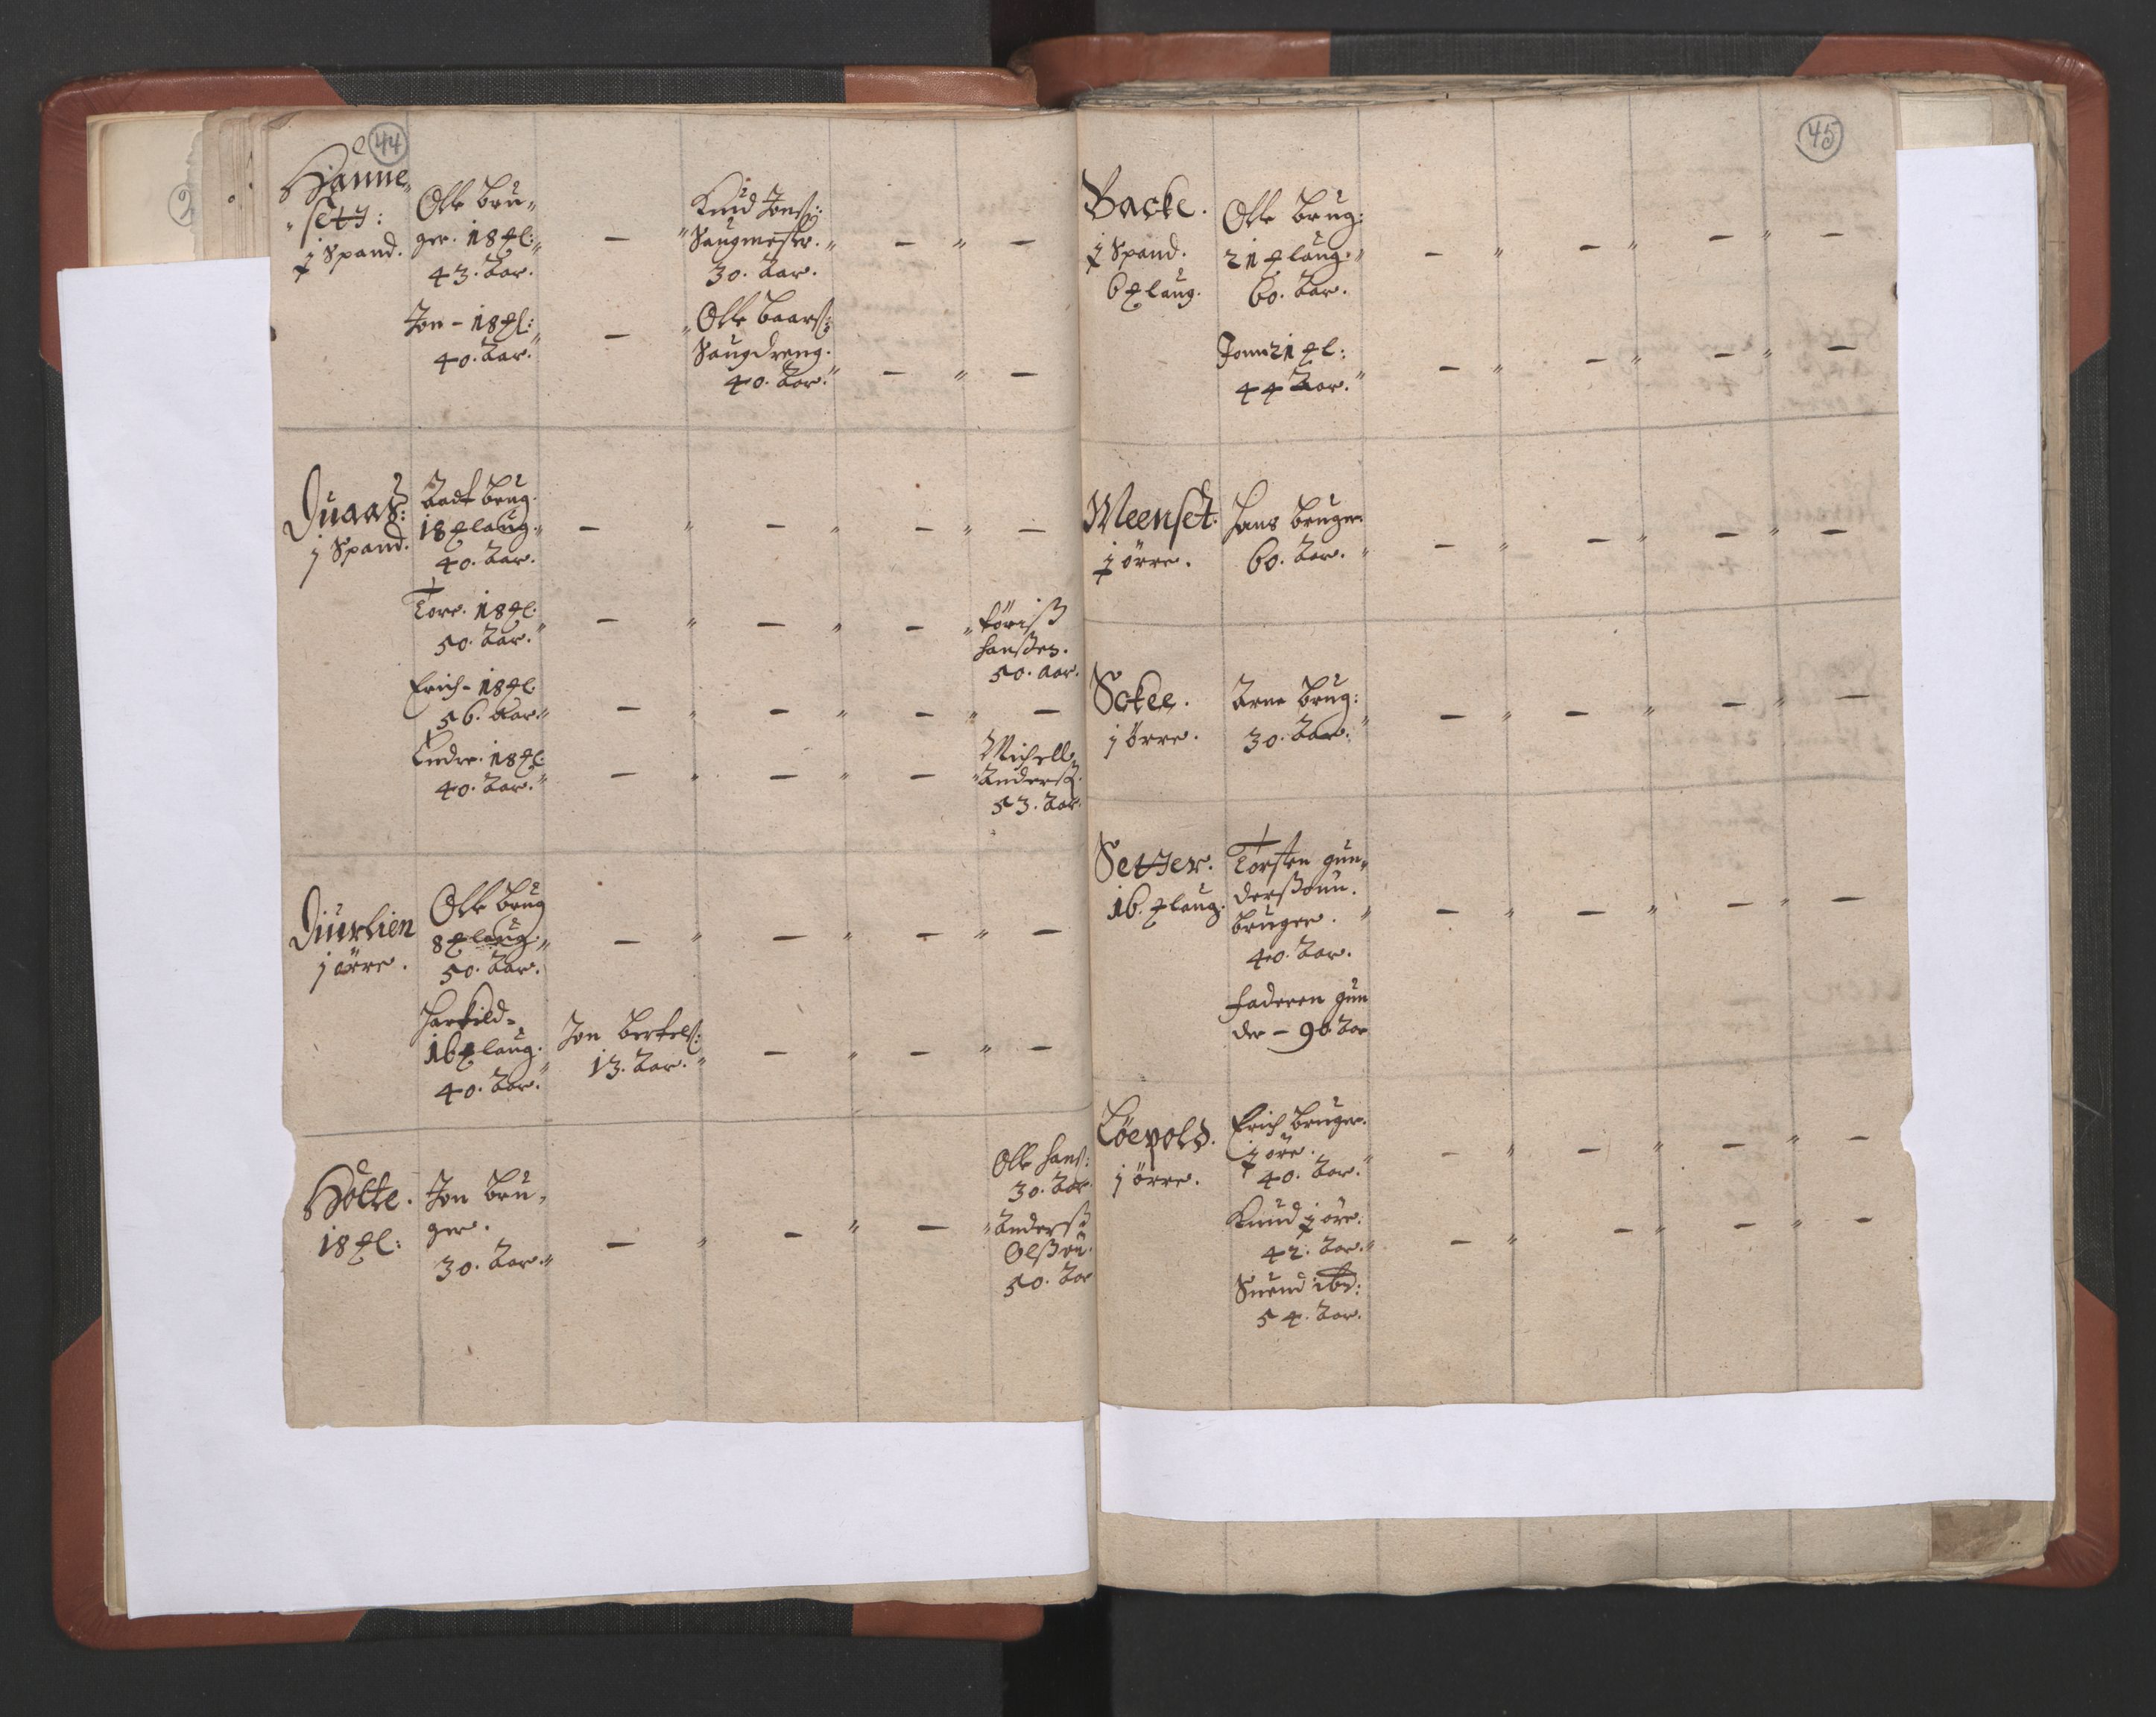 44
Hanne„
„sett:
½ Spand.
Olle bru„
ger. 18 ℔l:
43. Aar.
—
Knud Jons:
Saugmester.
30. Aar.
— „ —
Jon - 18 ℔l:
40. Aar.
—
Olle baars:
Saugdreng.
40. Aar.
— „ —
Duaas:
j Spand.
Aadt brug.
18 ℔laug.
40. Aar.
— „ — „ — „ —
Tore. 18 ℔l.
50. Aar.
— „ — „ — „
Jöriß
Hanßen.
50. aar.
Erich - 18 ℔l.
56. Aar.
— „ — „ — „ —
Endre. 18 ℔l.
40. Aar.
— „ — „ — „
Michell
Anderß:
53. Aar.
Diurlien
j örre.
Olle brug
8 ℔laug.
50. Aar.
— „ — „ — „ —
Harkild -
16 ℔laug.
40. Aar.
Jon bertels:
13. Aar.
— „ — „ —
Holte.
18 ℔l:
Jon bru„
ger.
30. Aar.
— „ — „ — „
Olle Hans:
30. Aar.
Anderß
Olßøn.
50. Aar
45
Backe.
½ Spand.
6 ℔laug.
Olle brug:
21 ℔laug.
60. Aar.
— „ — „ — „ —
Jonn 21 ℔l:
44 Aar.
— „ — „ — „ —
Meenset.
½ örre.
Hans bruger
60. Aar.
— „ — „ — „ —
j örre.
Arne brug:
30. Aar.
— „ — „ — „ —
Setter.
16. ℔laug.
Torsten gun„
derßonn.
bruger.
40. Aar.
— „ — „ — „ —
Faderen gun
der - 90 Aar
Löevold.
j örre.
Erich bruger.
½ öre.
40. Aar.
— „ — „ — „ —
Knud ½ öre.
42. Aar.
— „ — „ — „ —
Suend ibd:
54. Aar.